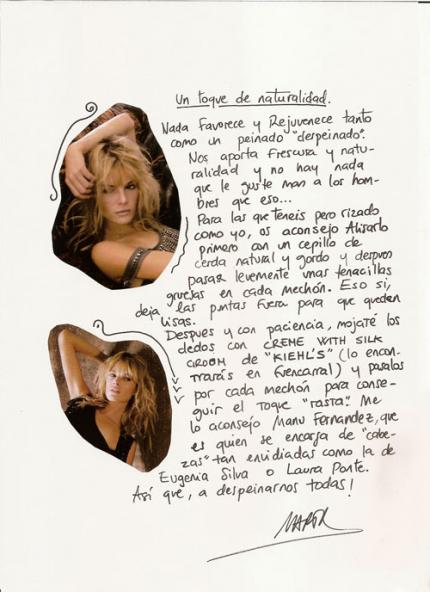 Un toque de naturalidad.
Nada Favorece y Rejuvenece tanto
como un peinado "despeinado".
Nos aporta frescura y natu-
ralidad y no hay nada
que le guste mas a los hom-
bres que eso...
Para las que teneis pelo rizado
como yo, os aconsejo Alisarlo
primero con un cepillo de
cerda natural y gordo y despues
pasar levemente unas tenacillas
gruesas en cada mechón. Eso si,
deja las puntas fuera para que queden
lisas.
Despues y con paciencia, mojaté los
dedos con CREME WITH SILK
GROOM de "KIEHL'S" (lo encon-
trarás en fuencarral) y pasalos
por cada mechón para conse-
guir el Toque "rasta". Me
lo aconsejo Manu Fernandez, que
es quien se encarga de "cabe-
zas" tan envidiadas como la de
Eugenia Silva o Laura Ponte.
Así que, a despeinarnos todas!